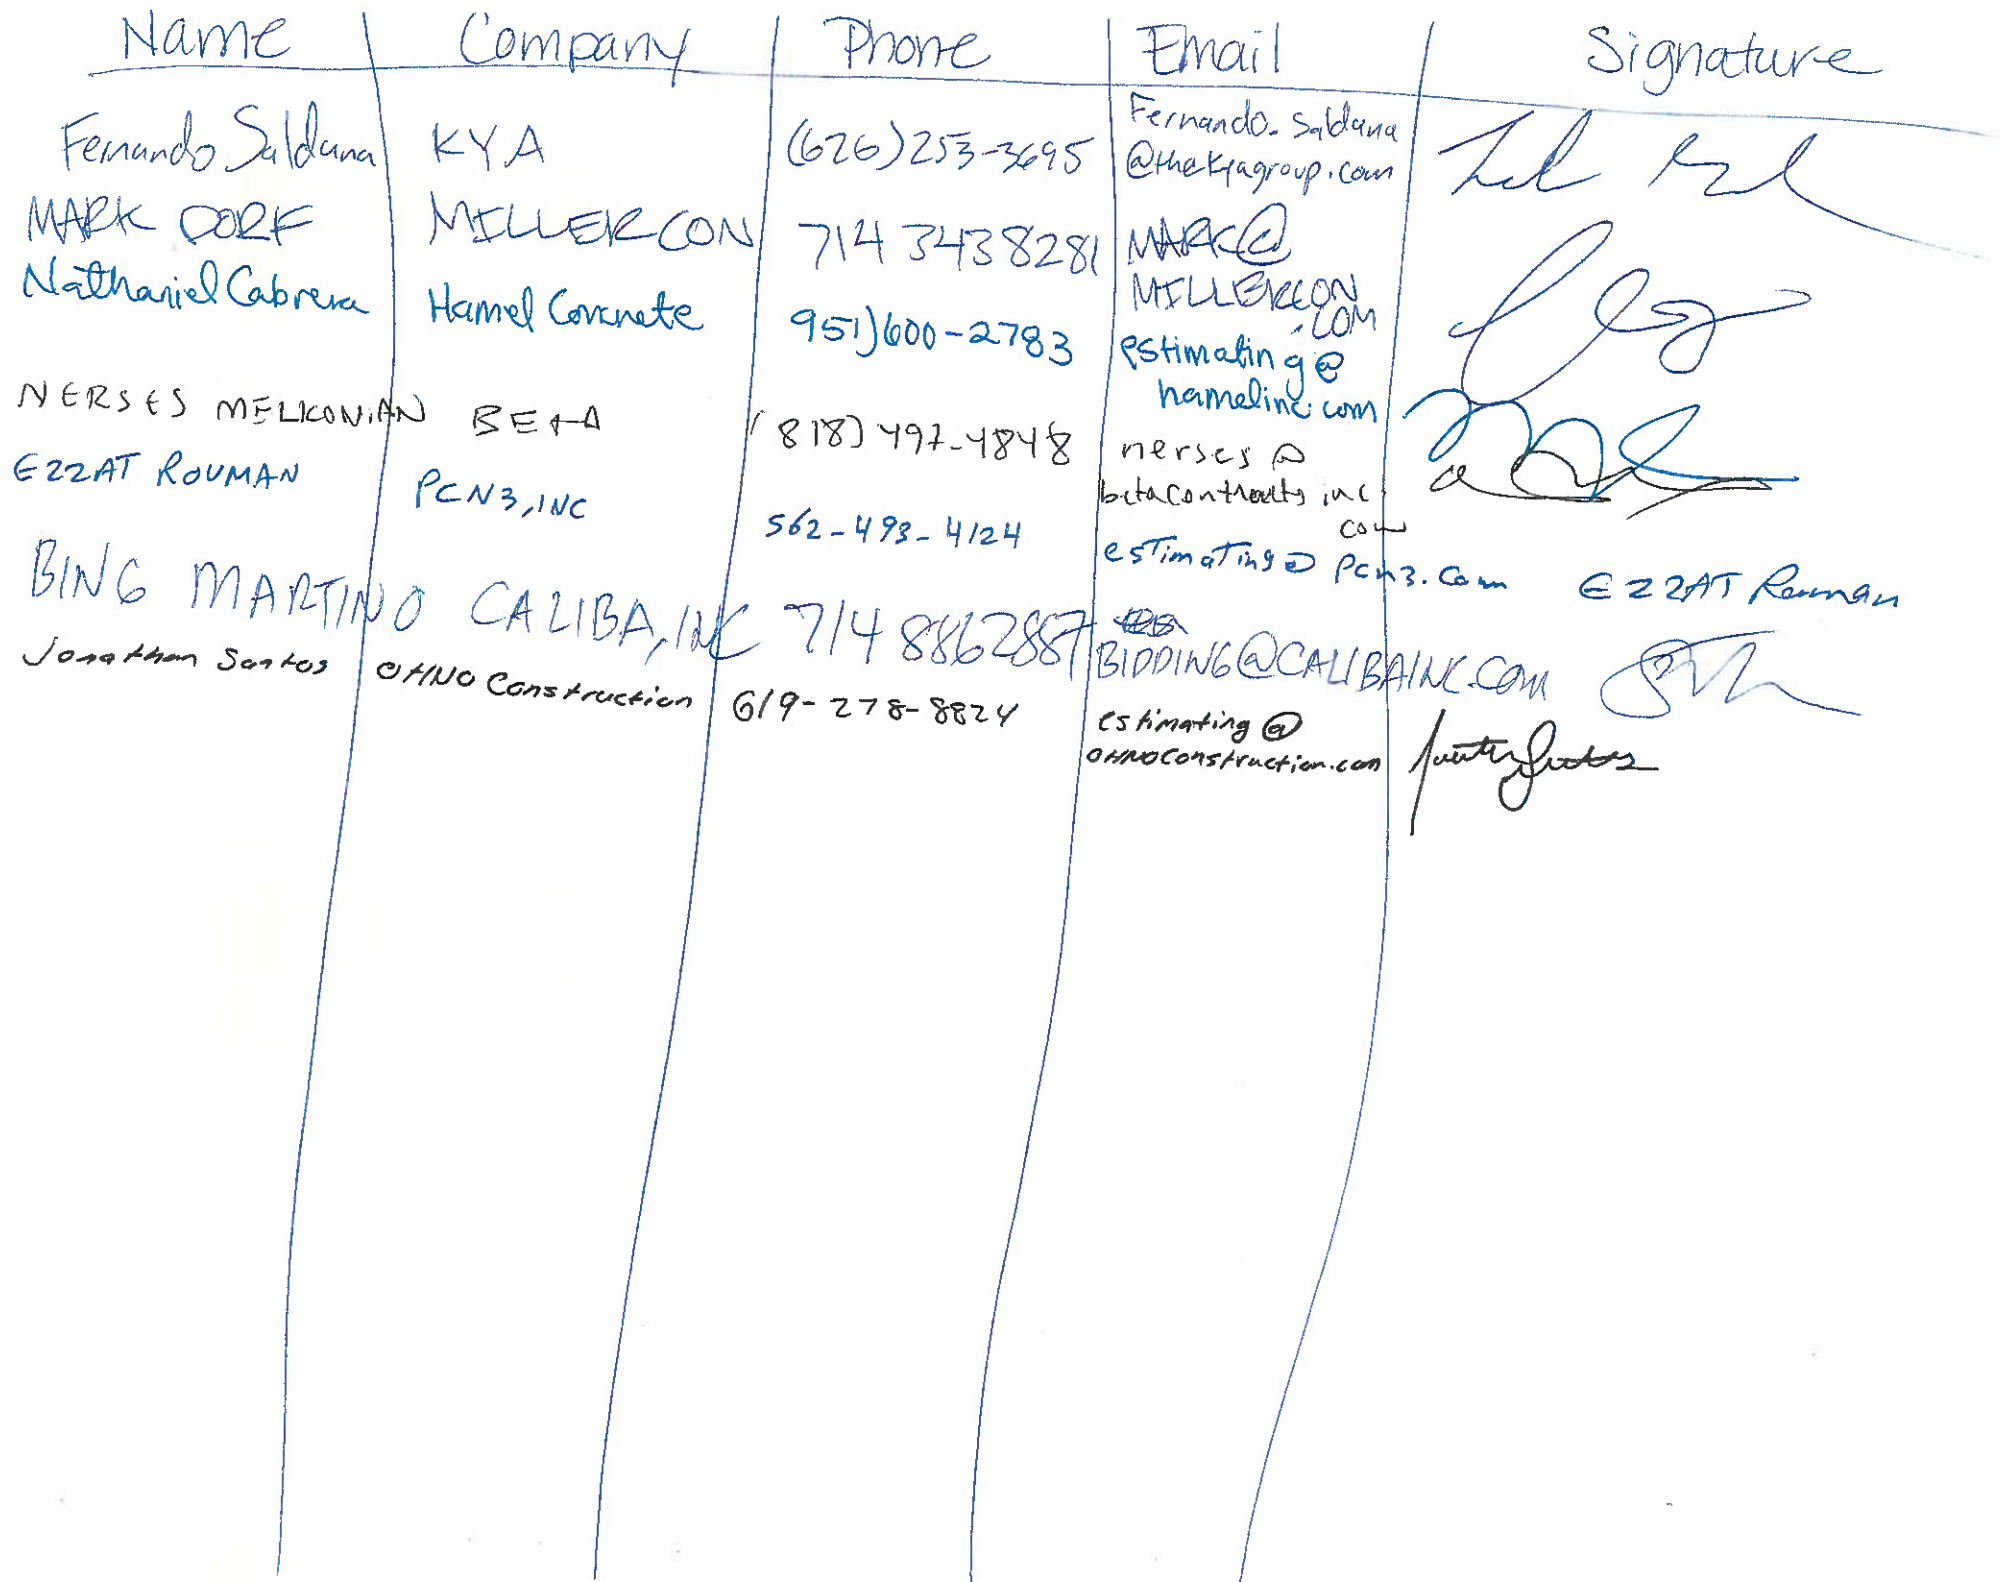 Name Company Phone Email Signature
Fernando Saldana KYA (626)253-3695 Fernando_Saldana
@thekyagroup.com
MARK DORF MILLERCON 714 3438281 MARK@
MILLERCON
.COM
Nathaniel Cabrera Hamel Concrete 951)600-2783 estimating@
hamelinc.com
NERSES MELKONIAN BETA (818) 497-4848 nerses@
betacontracts inc
com
EZZAT ROUMAN PCN3, INC 562-493-4124 estimating@pcn3.com EZZAT Rouman
BING MARTINO CALIBA, INC 714 8862887 BIDDING@CALIBAINC.COM
Jonathan Santos OHNO Construction 619-278-8824 estimating@
OHNOConstruction.com